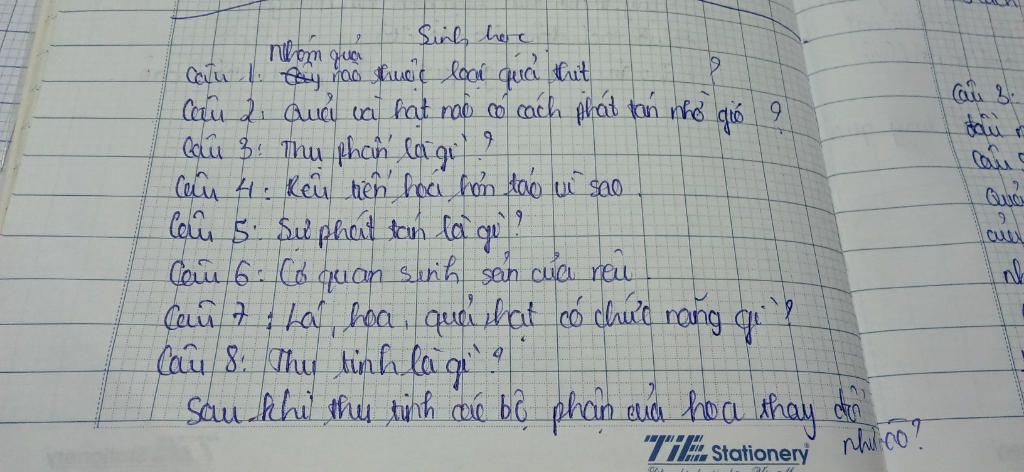 Sinh học
Nhóm quả
Câu 1: nào thuộc loại quả thịt ?
Câu 2: Quả và hạt nào có cách phát tán nhờ gió ?
Câu 3: Thụ phấn là gì ?
Câu 4: Rêu tiến hoá hơn tảo vì sao
Câu 5: Sự phát tán là gì ?
Câu 6: Cơ quan sinh sản của rêu
Câu 7: Lá, hoa, quả, hạt có chức năng gì ?
Câu 8: Thụ tinh là gì ?
Sau khi thụ tinh các bộ phận của hoa thay đổi
như
TiE Stationery
Câu 3:
Câu
Quả